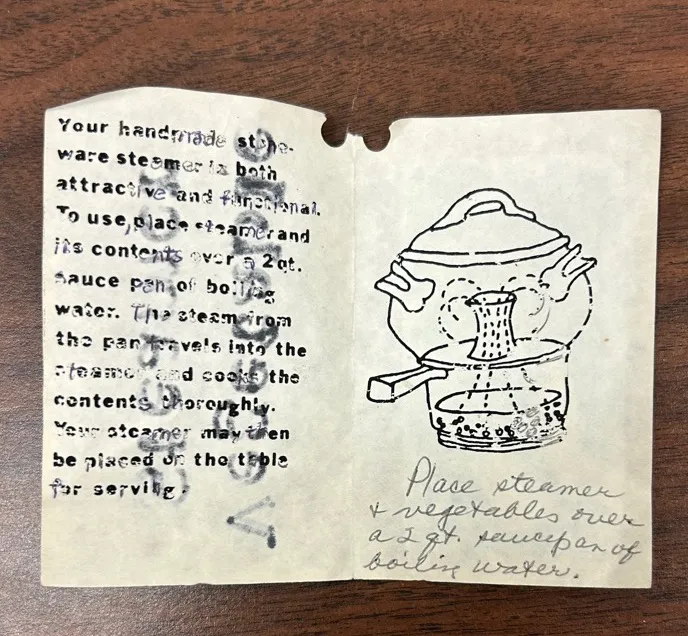 Your handmade stone-
ware steamer is both
attractive and functional.
To use, place steamer and
its contents over a 2 qt.
sauce pan of boiling
water. The steam from
the pan travels into the
steamer and cooks the
contents thoroughly.
Your steamer may then
be placed on the table
for serving.
Place steamer
+ vegetables over
a 2 qt. saucepan of
boiling water.